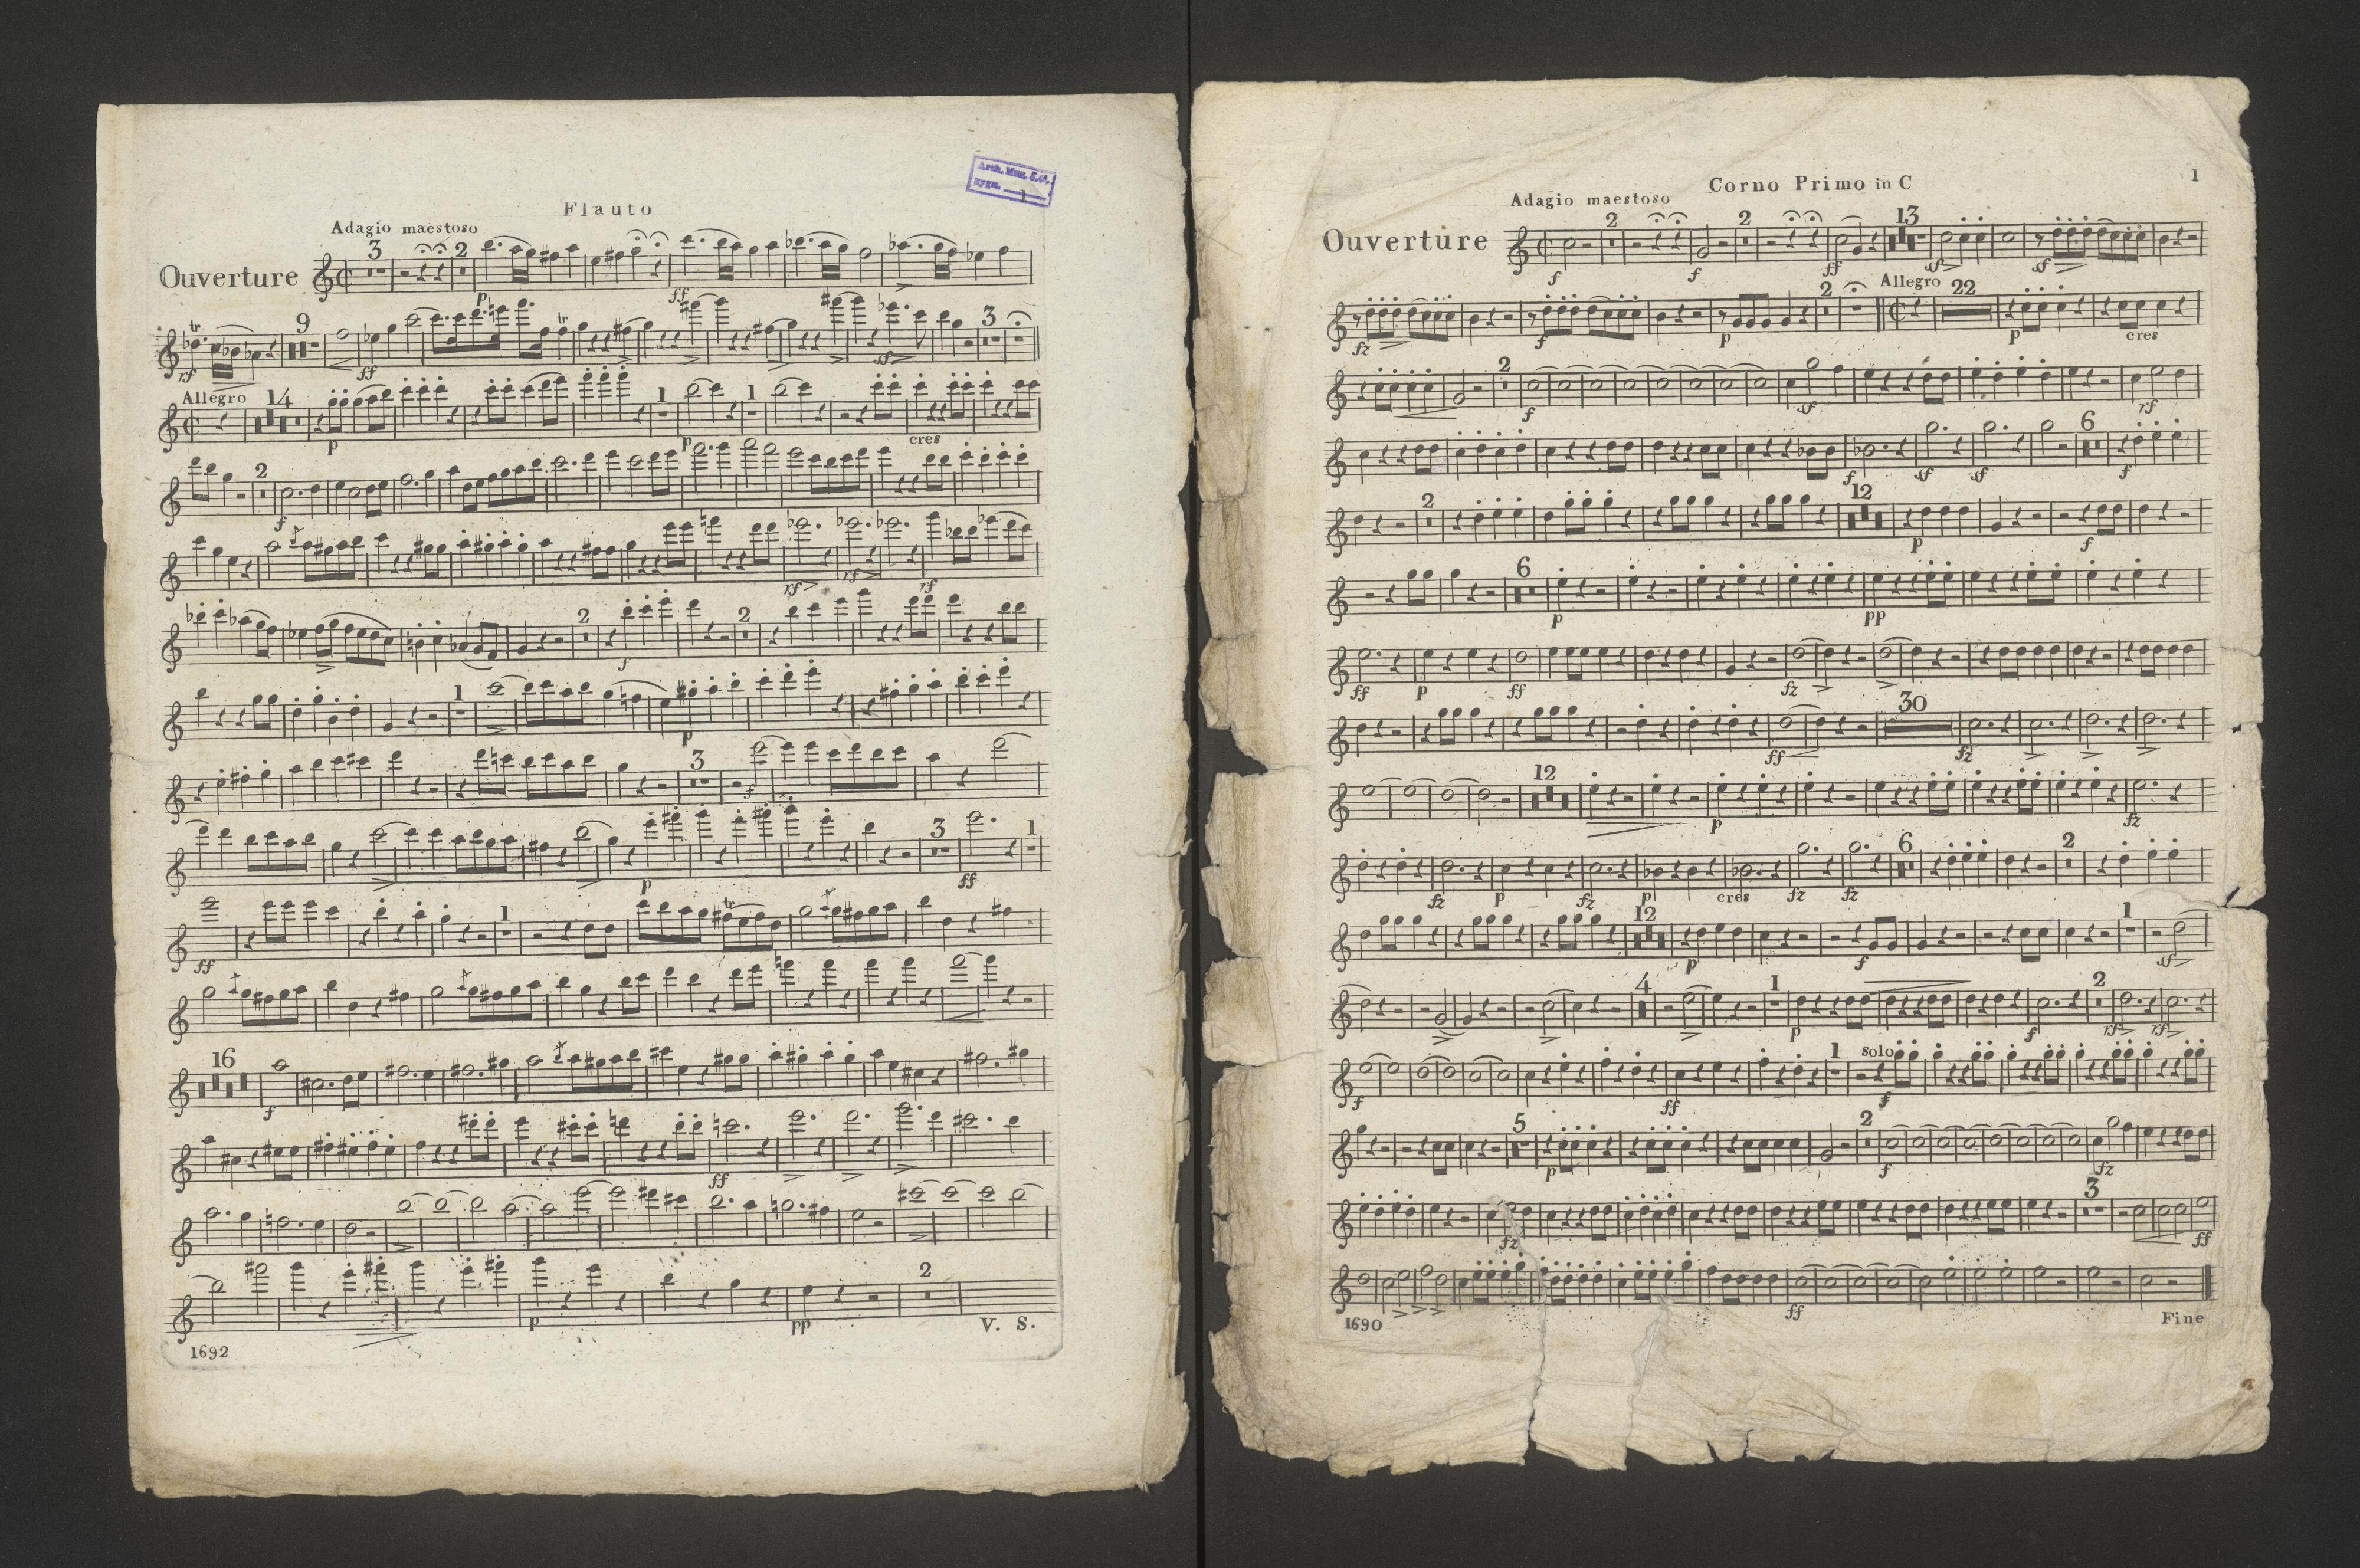 Flauto
Adagio maestoso
Ouverture
3 2
p ff
tr 9 tr 3
rf ff sf
Allegro 14 1 1
p p cres
2
f
rf rf rf
2 2
f
1
p
3
f
3 1
p ff
1 tr
ff
16
f
ff
2
p pp V. S.
1692
Corno Primo in C
1
Adagio maestoso
Ouverture
2 2 13
f f ff sf sf
2 Allegro 22
fz f p p cres
2
f sf rf
6
f sf sf f
2 12
p f
6
p pp
ff p ff fz
30
ff fz
12
p fz
6 2
fz p fz p cres fz fz
12 1
p f sf
4 1 2
p f rf rf
1 solo
f ff f
5 2
p f fz
3
fz ff
ff
1690 Fine